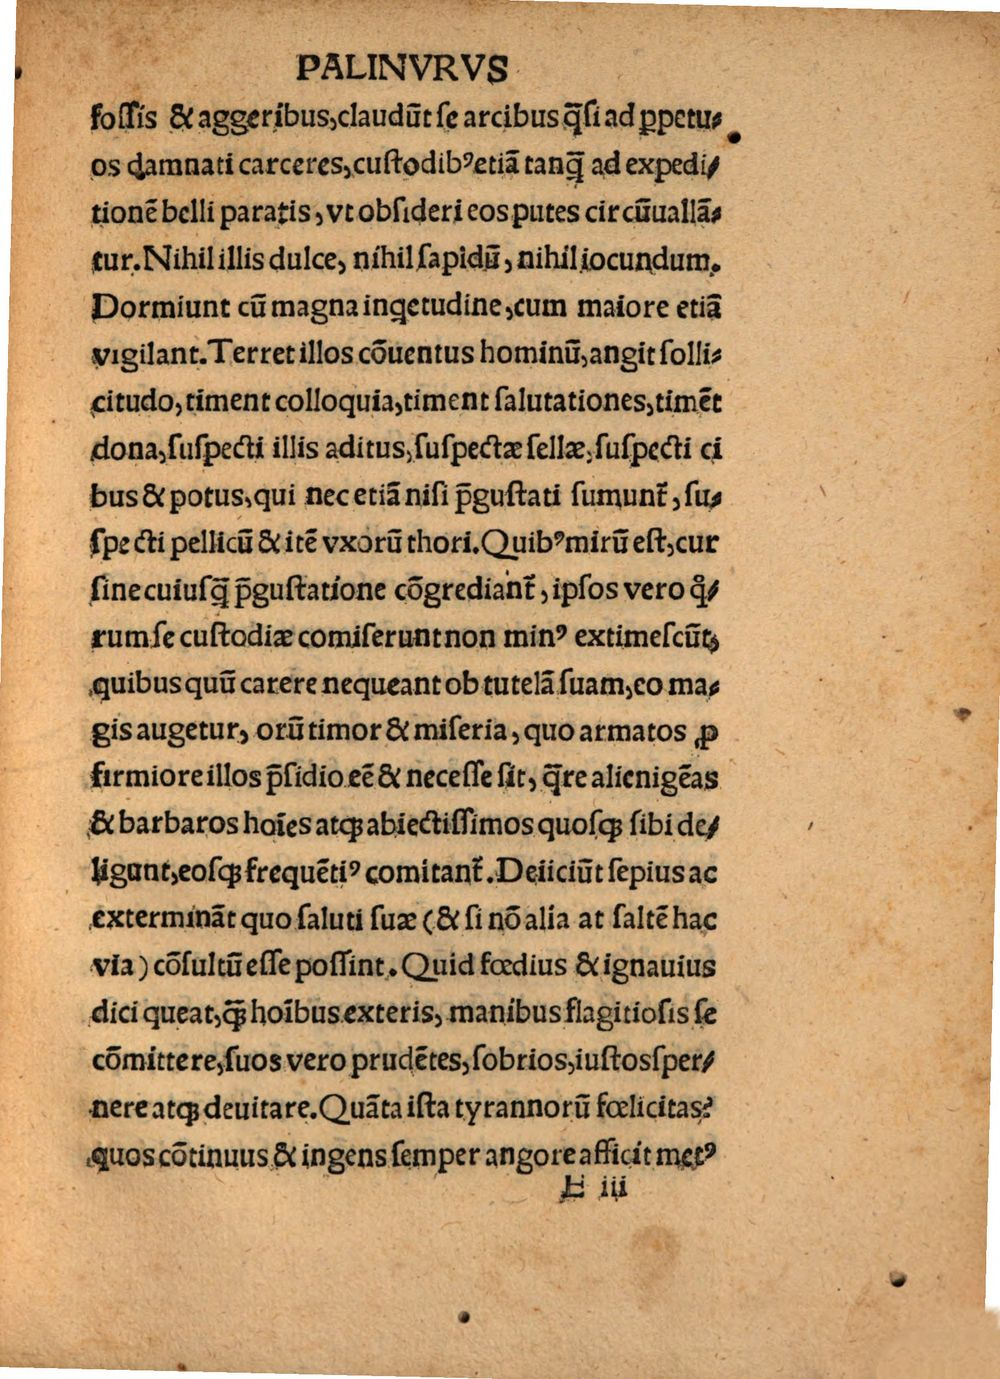 PALINVRVS
foſſis & aggeribus, claudūt ſe arcibus q̄ſi ad ꝑpetu⸗
os damnati carceres, cuſtodibꝰ etiā tanq̄ ad expedi⸗
tionē belli paratis, vt obſideri eos putes circūuallā⸗
tur. Nihil illis dulce, nihil ſapidū, nihil iocundum.
Dormiunt cū magna inq̇etudine, cum maiore etiā
vigilant. Terret illos cōuentus hominū, angit ſolli⸗
citudo, timent colloquia, timent ſalutationes, timēt
dona, ſuſpecti illis aditus, ſuſpectæ ſellæ, ſuſpecti ci
bus & potus, qui nec etiā niſi p̄guſtati ſumunt᷑, ſu⸗
ſpecti pellicū & itē vxorū thori. Quibꝰ mirū eſt, cur
ſine cuiuſq̄ p̄guſtatione cōgrediant᷑, ipſos vero qͦ⸗
rum ſe cuſtodiæ comiſerunt non minꝰ extimeſcūt,
quibus quū carere nequeant ob tutelā ſuam, eo ma⸗
gis augetur, orū timor & miſeria, quo armatos ꝓ
firmiore illos p̄ſidio eē & neceſſe ſit, q̄re alienigēas
& barbaros hoīes atqꝫ abiectiſſimos quoſqꝫ ſibi de⸗
ligunt, eoſqꝫ frequētiꝰ comitant᷑. Deiiciūt ſepius ac
extermināt quo ſaluti ſuæ (& ſi nō alia at ſaltē hac
via) cōſultū eſſe poſſint. Quid fœdius & ignauius
dici queat, qꝫ̄ hoībus exteris, manibus flagitioſis ſe
cōmittere, ſuos vero prudētes, ſobrios, iuſtos ſper⸗
nere atqꝫ deuitare. Quāta iſta tyrannorū fœlicitas?
quos cōtinuus & ingens ſemper angore afficit metꝰ
E iii